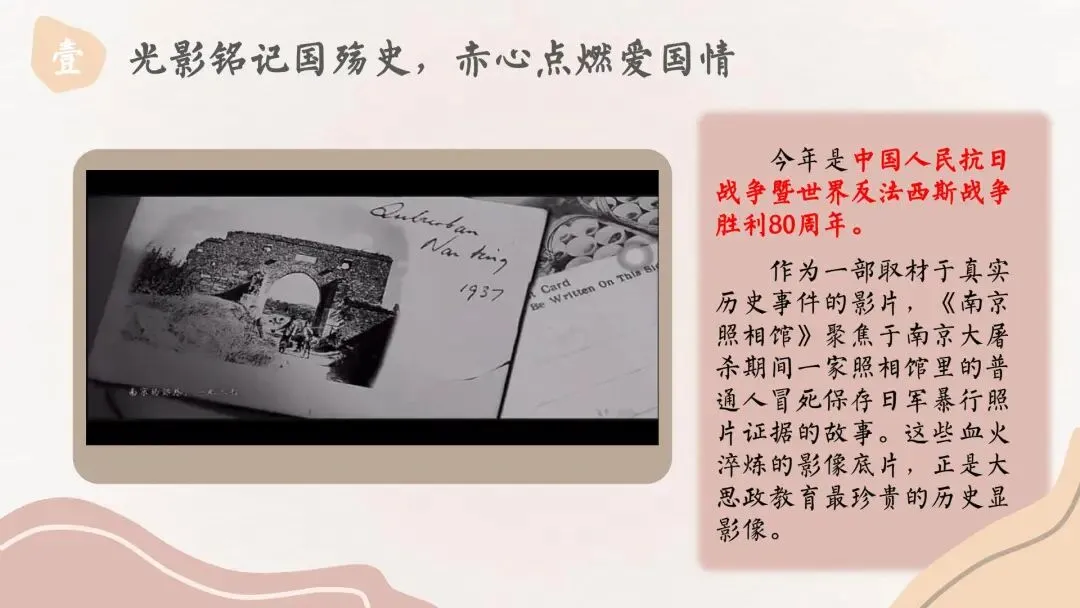 壹
光影铭记国殇史，赤心点燃爱国情
Suburban
Nan King
1937
Card
Be Written On This Sid
南京的郊外，一九三七
今年是中国人民抗日
战争暨世界反法西斯战争
胜利80周年。
作为一部取材于真实
历史事件的影片，《南京
照相馆》聚焦于南京大屠
杀期间一家照相馆里的普
通人冒死保存日军暴行照
片证据的故事。这些血火
淬炼的影像底片，正是大
思政教育最珍贵的历史显
影像。